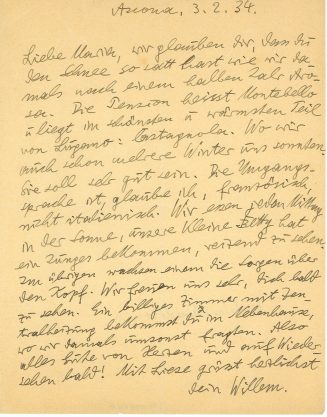 Ascona, 3.2.34.
Liebe Maria, wir glauben Dir, dass du
den Schnee so satt hast wie wir da-
mals nach einem halben Jahr Aro-
sa. Die Pension heisst Montebello
u liegt im schönsten u wärmsten Teil
von Lugano: Castagnola. Wo wir
auch schon mehrere Winter uns sonnten
Sie soll sehr gut sein. Die Umgangs-
sprache ist, glaube ich, französisch,
nicht italienisch. Wir essen jeden Mittag
in der Sonne, unsere kleine Betty hat
ein Junges bekommen, reizend zu sehen.
Im übrigen wachsen einem die Sorgen über
den Kopf. Wir freuen uns sehr, Dich bald
zu sehen. Ein billiges Zimmer mit Zen-
tralheizung bekommst Du im Nebenhause,
wo wir damals umsonst fragten. Also
alles Gute von Herzen und auf Wieder-
sehen bald! Mit Liese grüsst herzlichst
Dein Willem.